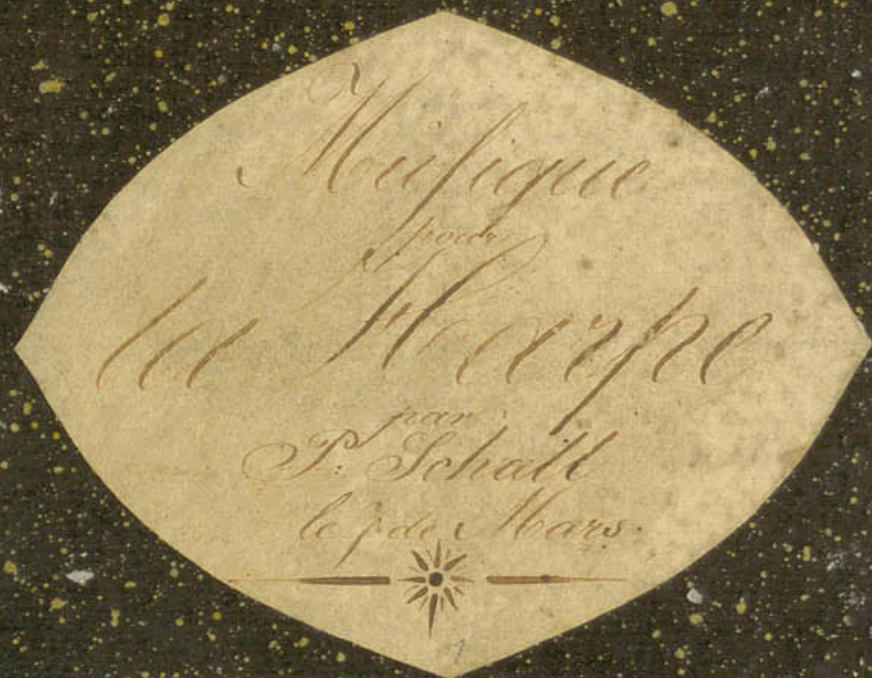 Musique
pour
la Harpe
par
P. Schall
le de Mars.
1